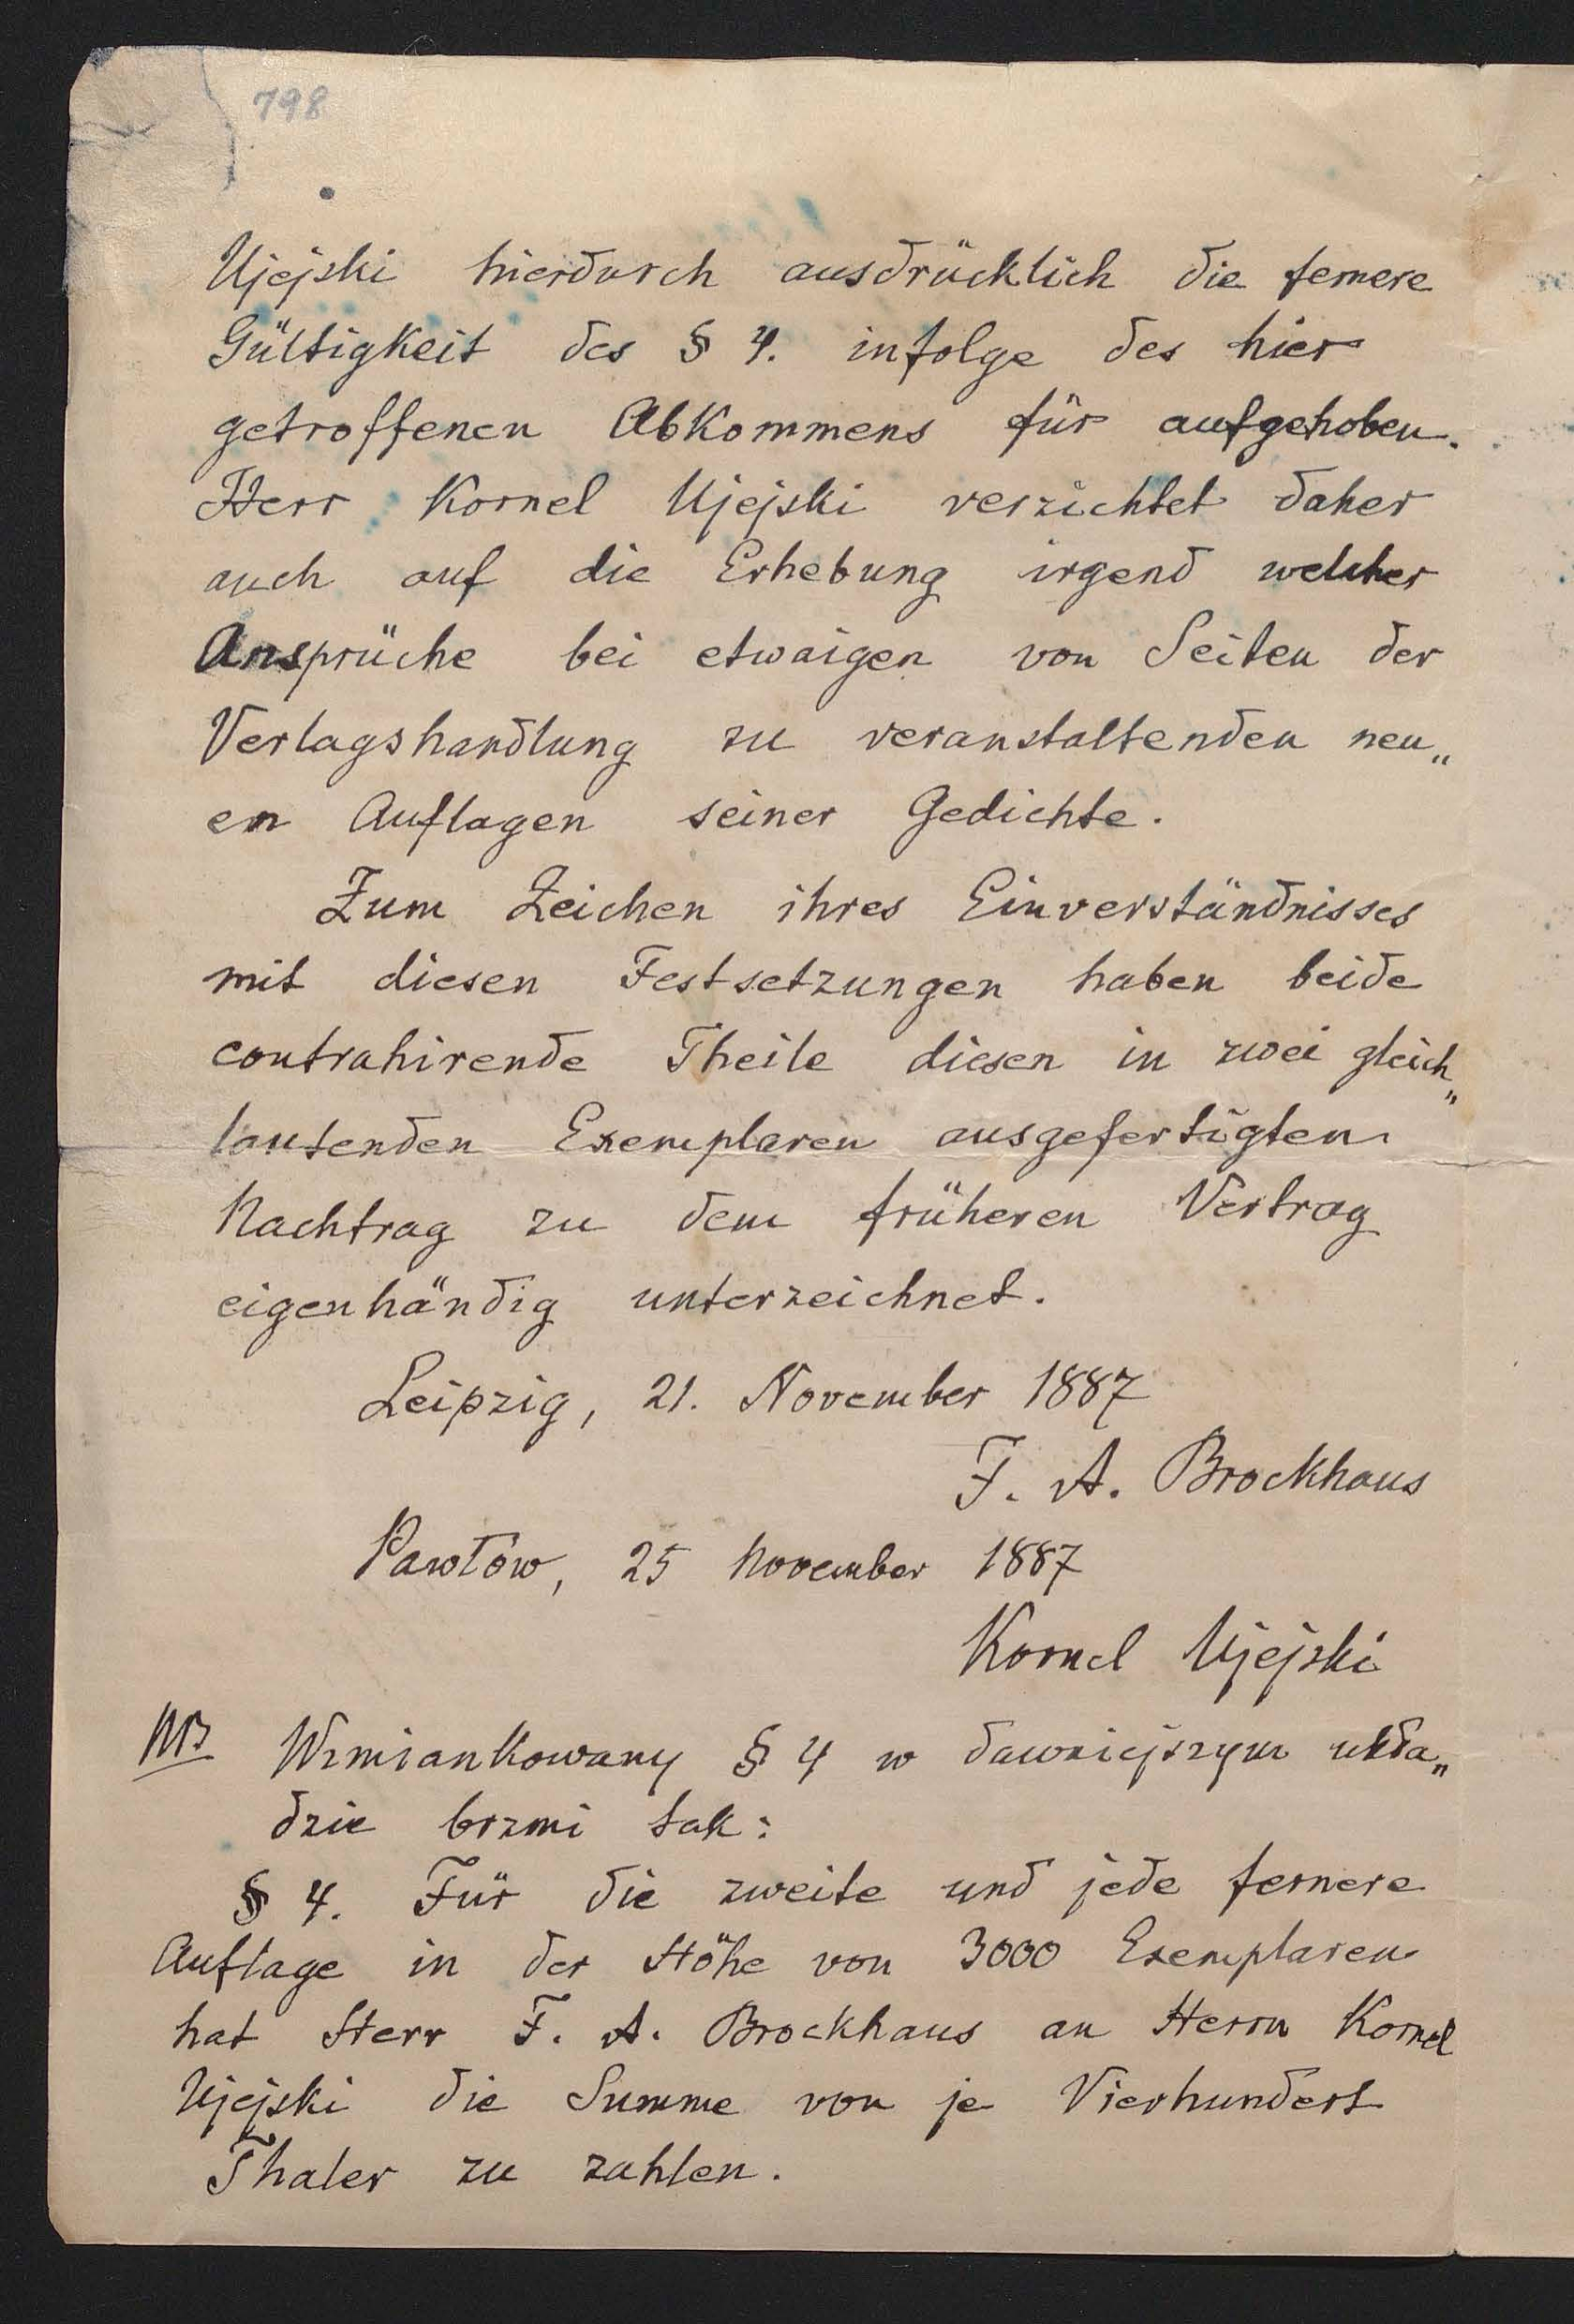 798
Ujejski hierdurch ausdrücklich die fernere
Gültigkeit des § 4. infolge des hier
getroffenen Abkommens für aufgehoben.
Herr Kornel Ujejski verzichtet daher
auch auf die Erhebung irgend welcher
Ansprüche bei etwaigen von Seiten der
Verlagshandlung zu veranstaltenden neu„
en Auflagen seiner Gedichte.
Zum Zeichen ihres Einverständnisses
mit diesen Festsetzungen haben beide
contrahirende Theile diesen in zwei gleich„
lautenden Exemplaren ausgefertigten
Nachtrag zu dem früheren Vertrag
eigenhändig unterzeichnet.
Leipzig, 21. November 1887
F. A. Brockhaus
Pawłów, 25 November 1887
Kornel Ujejski
NB Wzmiankowany § 4 w dawniejszym ukła„
dzie brzmi tak:
§ 4. Für die zweite und jede fernere
Auflage in der Höhe von 3000 Exemplaren
hat Herr F. A. Brockhaus an Herrn Kornel
Ujejski die Summe von je Vierhundert
Thaler zu zahlen.